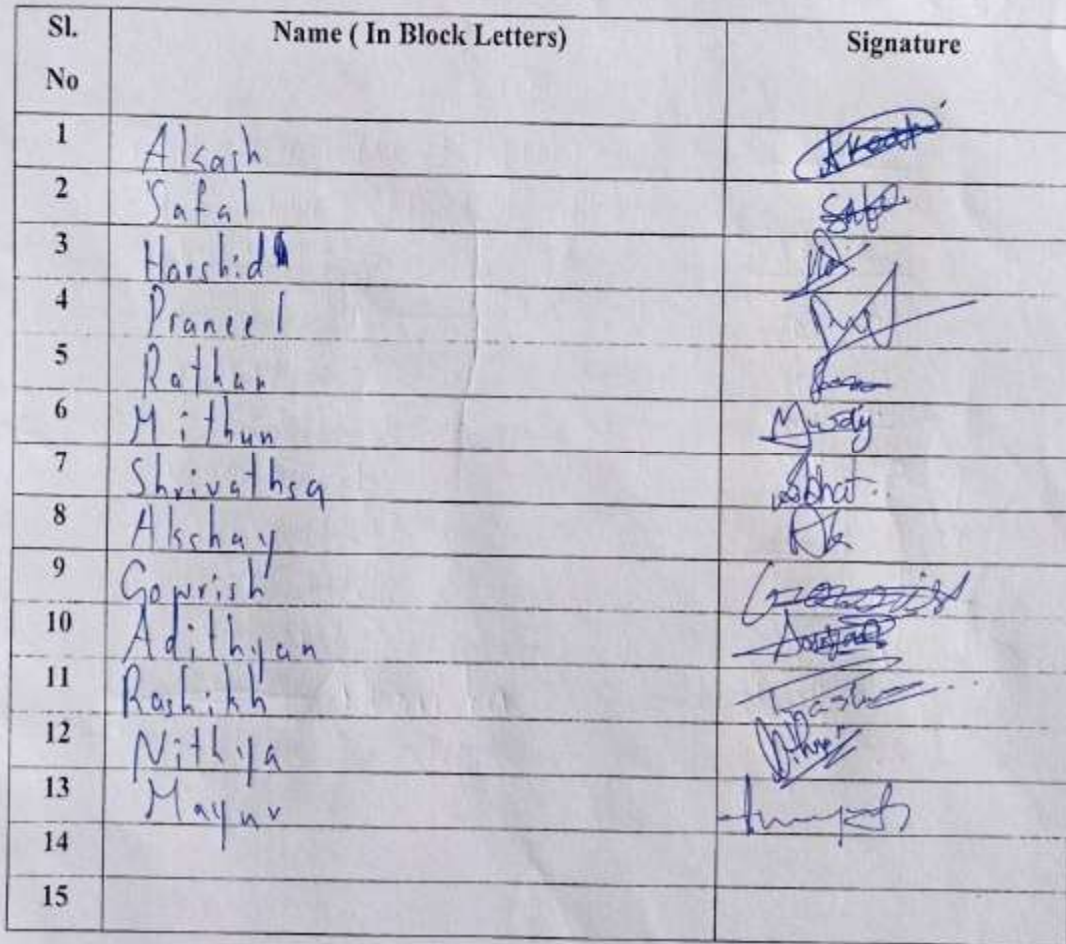 Sl. No Name ( In Block Letters) Signature
1 Akash Akash
2 Safal Safal
3 Harshid
4 Praneel
5 Rathan
6 Mithun
7 Shrivathsa Bhat
8 Akshay Ak
9 Gowrish Gowrish
10 Adithyan
11 Rashikh
12 Nithya
13 Mayur
14
15